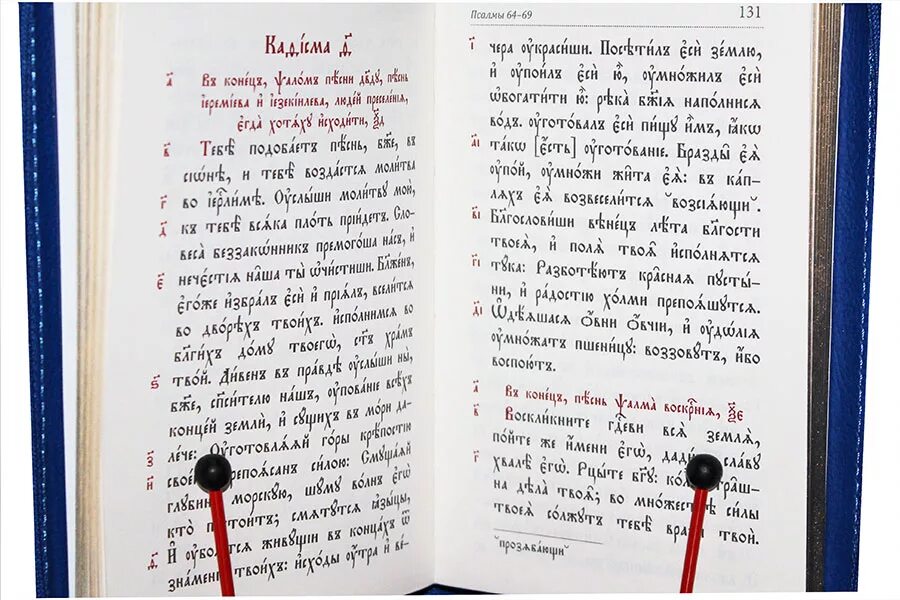 Каѳі́сма ѳ҃.
а҃ Въ коне́цъ, ѱало́мъ пѣ́сни дв҃ду, пѣ́снь
іеремі́ева и҆ і҆езекі́илева, люде́й преселе́нія,
є҆гда̀ хотѧ́ху и҆сходи́ти, ѯ҃д
в҃ Тебѣ̀ подоба́етъ пѣ́снь, бж҃е, въ
сіѡ́нѣ, и҆ тебѣ̀ возда́стсѧ моли́тва
г҃ во і҆ерⷭ҇ли́мѣ. Оу҆слы́ши моли́тву мою̀,
д҃ къ тебѣ̀ всѧ́ка пло́ть прїи́детъ. Сло-
веса̀ беззако́нникъ премого́ша на́съ, и҆
є҃ нече́стїѧ на̑ша ты̀ ѡ҆чи́стиши. Бл҃же́нъ,
є҆го́же и҆збра́лъ є҆сѝ и҆ прїѧ́лъ, всели́тсѧ
во дво́рѣхъ твои́хъ. и҆спо́лнимсѧ во
бл҃ги́хъ до́му твоегѡ̀, ст҃ъ хра́мъ
ѕ҃ тво́й. Ди́венъ въ пра́вдѣ оу҆слы́ши ны̀,
бж҃е, сп҃си́телю на́шъ, оу҆пова́нїе всѣ́хъ
конце́й землѝ, и҆ су́щихъ въ мо́ри да-
з҃ ле́че: Оу҆готовлѧ́ѧй го́ры крѣ́постїю
и҃ препоѧ́санъ си́лою: Смуща́ѧй
глубину̀ морску́ю, шу́му во́лнъ є҆гѡ̀
кто̀ постои́тъ; смѧту́тсѧ ꙗ҆зы́цы,
ѳ҃ И҆ оу҆боѧ́тсѧ живу́щїи въ конца́хъ ѿ
зна́менїй твои́хъ: и҆схо́ды оу҆́тра и҆ ве́-
Псалмы 64–69 131
і҃ чера оу҆краси́ши. Посѣти́лъ є҆сѝ зе́млю,
и҆ оу҆пои́лъ є҆сѝ ю҆̀, оу҆мно́жилъ є҆сѝ
ѡ҆богати́ти ю҆̀: рѣка̀ бж҃їѧ напо́лнисѧ
во́дъ. оу҆гото́валъ є҆сѝ пи́щу и҆̀мъ, ꙗ҆́кѡ
а҃і та́кѡ [є҆́сть] оу҆гото́ванїе. Бразды̑ є҆ѧ̀
оу҆по́й, оу҆мно́жи жи̑та є҆ѧ̀: въ ка́п-
лѧхъ є҆ѧ̀ возвесели́тсѧ *возсїѧ́ющи*.
в҃і Бл҃гослови́ши вѣне́цъ лѣ́та бл҃гости
твоеѧ̀, и҆ полѧ̀ твоѧ̑ и҆спо́лнѧтсѧ
г҃і ту́ка: Разботѣ́ютъ кра̑снаѧ пусты́-
ни, и҆ ра́достїю хо́лми препоѧ́шутсѧ.
д҃і Ѡ҆дѣ́ѧшасѧ ѻ҆́вни ѻ҆́вчїи, и҆ оу҆дѡ́лїѧ
оу҆мно́жатъ пшени́цу: воззову́тъ, и҆́бо
воспою́тъ.
а҃ Въ коне́цъ, пѣ́снь ѱалма̀ воскрⷭ҇нїѧ, ѯ҃є
в҃ Воскли́кните гдⷭ҇еви всѧ̀ землѧ̀,
по́йте же и҆́мени є҆гѡ̀, дади́те сла́ву
г҃ хвалѣ̀ є҆гѡ̀. Рцы́те бг҃у: ко́ль стра̑ш-
на дѣла̀ твоѧ̑; во мно́жествѣ си́лы
твоеѧ̀ со́лжутъ тебѣ̀ вразѝ твоѝ.
*прозѧба́ющи*